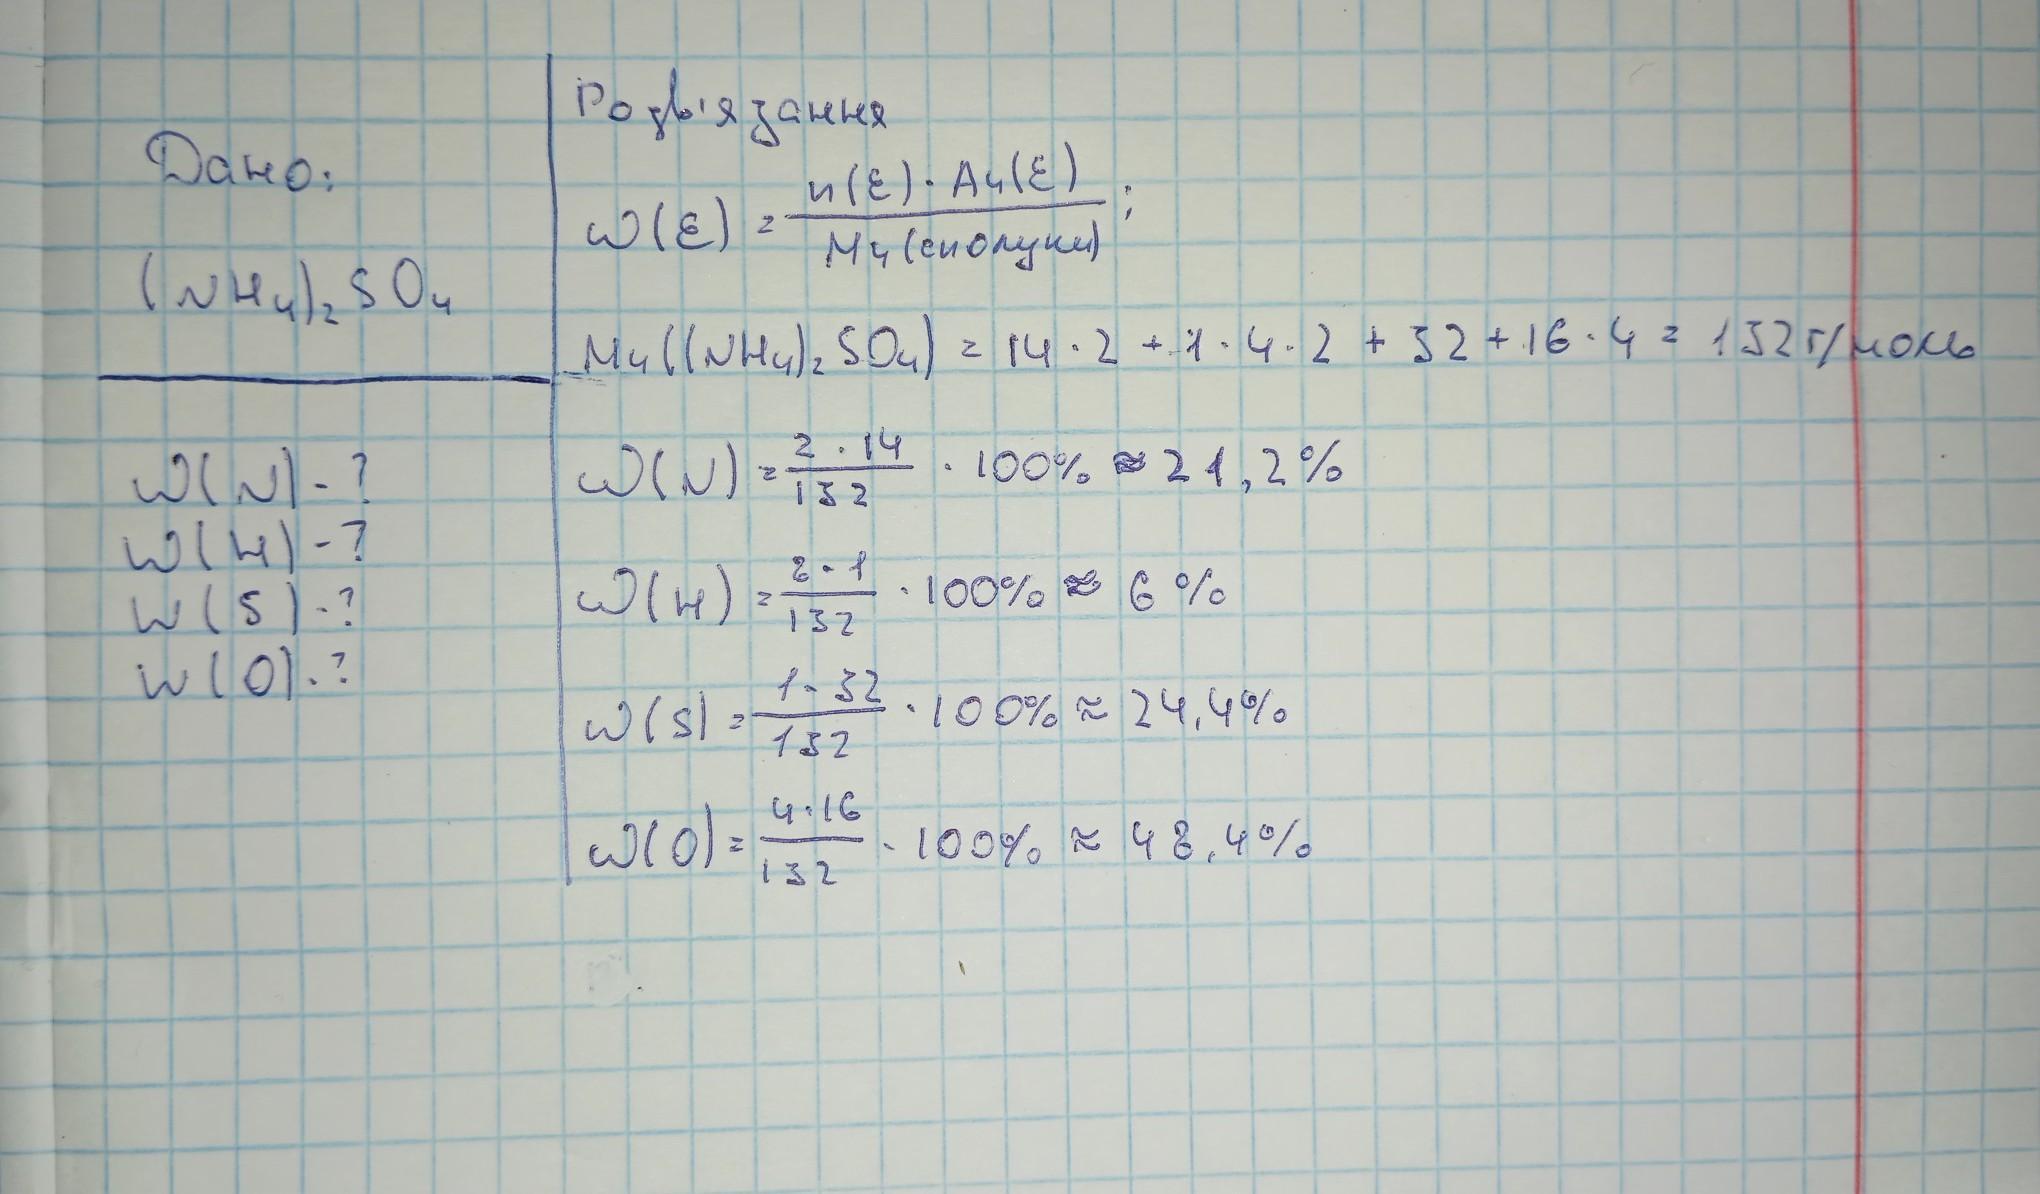 Дано:
(NH₄)₂SO₄
W(N)-?
W(H)-?
W(S)-?
W(O).?
Розв'язання
W(E) = n(E)·Ar(E) / Mr(сполуки) ;
Mr((NH₄)₂SO₄) = 14·2+1·4·2+32+16·4=132г/моль
W(N) = 2·14/132 · 100% ≈ 21,2%
W(H) = 8·1/132 · 100% ≈ 6%
W(S) = 1·32/132 · 100% ≈ 24,4%
W(O) = 4·16/132 · 100% ≈ 48,4%